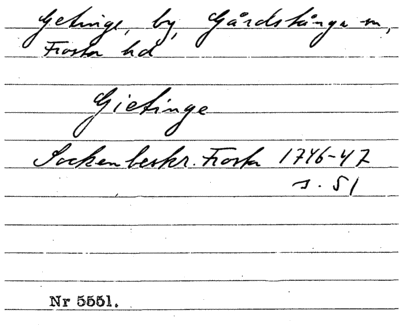 Getinge, by, Gårdstånga sn,
Frosta hd
Gietinge
Sockenbeskr. Frosta 1746-47
s. 51
Nr 5551.